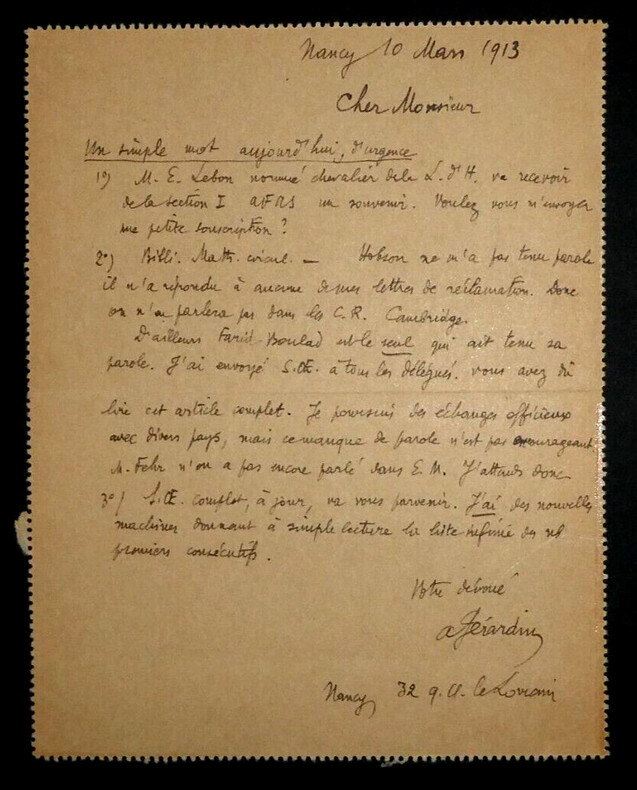 Nancy 10 Mars 1913
Cher Monsieur
Un simple mot aujourd'hui, d'urgence
1o) M. E. Lebon nommé chevalier de la L. d'H. va recevoir
de la section I AFAS un souvenir. Voulez vous m'envoyer
une petite souscription ?
2o) Bibli. Math. circul. — Hobson ne m'a pas tenu parole
il n'a répondu à aucune de mes lettres de réclamation. Donc
on n'en parlera pas dans les C. R. Cambridge.
D'ailleurs Farid-Boulad est le seul qui ait tenu sa
parole. J'ai envoyé S.Œ. à tous les délégués. vous avez dû
lire cet article complet. Je poursuis des échanges officieux
avec divers pays, mais ce manque de parole n'est pas encourageant
M. Fehr n'en a pas encore parlé dans E. M. J'attends donc
3o) S.Œ. complet, à jour, va vous parvenir. J'ai des nouvelles
machines donnant à simple lecture la liste infinie des nb
premiers consécutifs.
Votre dévoué
A Gérardin
Nancy 32 q. Cl. le Lorrain